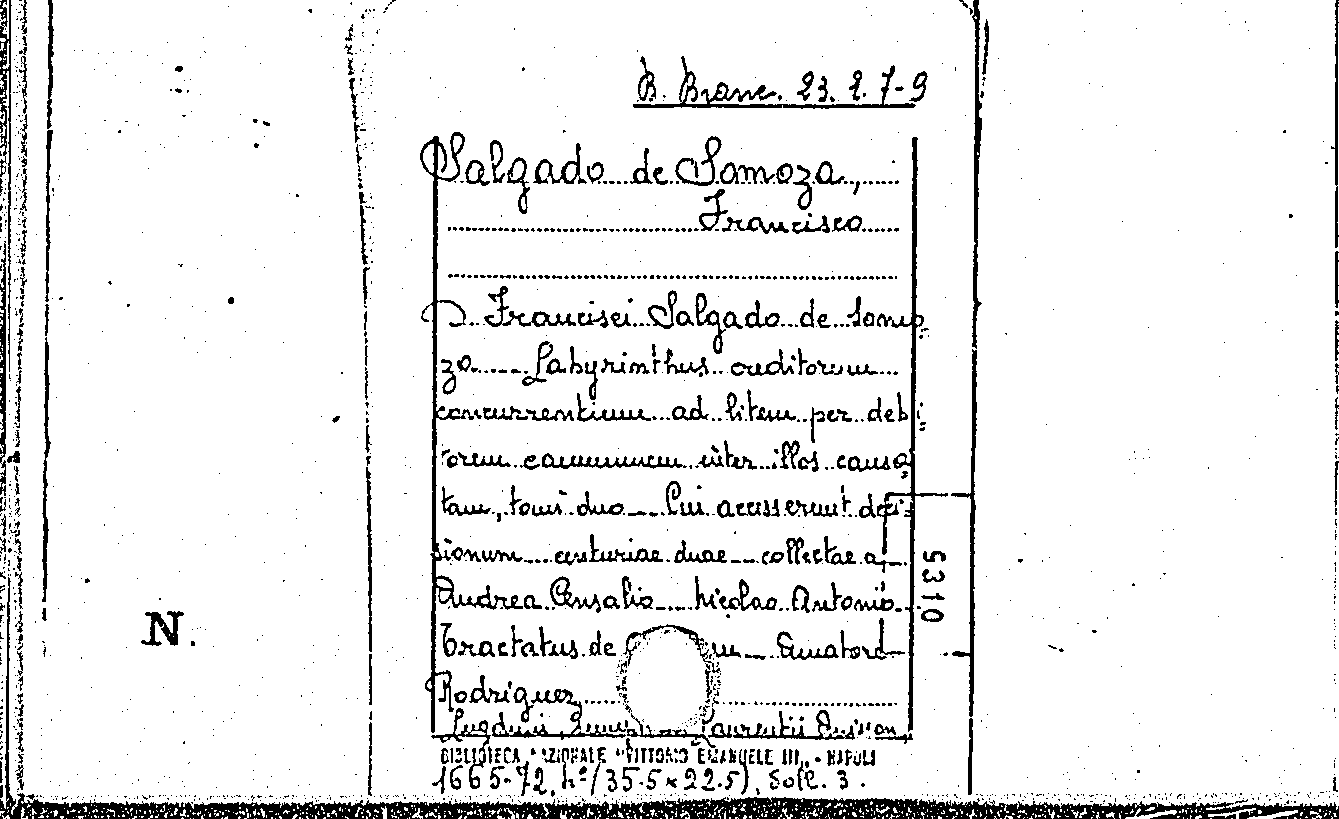 B. Branc. 23. 2. 7-9
Salgado de Somoza,
Francisco
D. Francisci Salgado de Somo=
za --- Labyrinthus creditorum
concurrentium ad litem per debi=
torem communem inter illos causa
tam, tomi duo -- Cui accesserunt deci=
sionum centuriae duae -- collectae a --
Andrea Ansalio -- Nicolao Antonio --
Tractatus de -- Amatore --
Rodriguez
Lugduni, Laurentii Anisson,
BIBLIOTECA NAZIONALE "VITTORIO EMANUELE III" - NAPOLI
1665-72, h°/(35.5 x 22.5), Soll. 3.
5310
N.